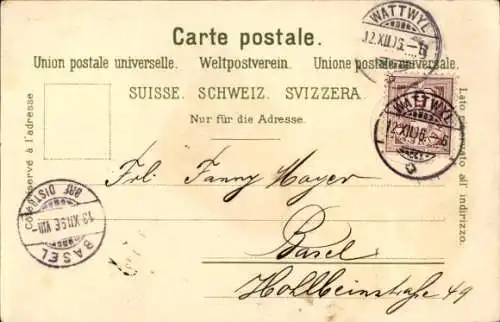 WATTWYL
12.XII.96.–6
Carte postale.
Union postale universelle. Weltpostverein. Unione postale universale.
SUISSE. SCHWEIZ. SVIZZERA.
Nur für die Adresse.
Côté réservé à l'adresse
Lato riservato all' indirizzo.
WATTWYL
12.XII.96.–6
Frl. Fanny Mayer
Basel
Holbeinstraße 49
BRF. DIST.
13.XII.96.VIII–
BASEL